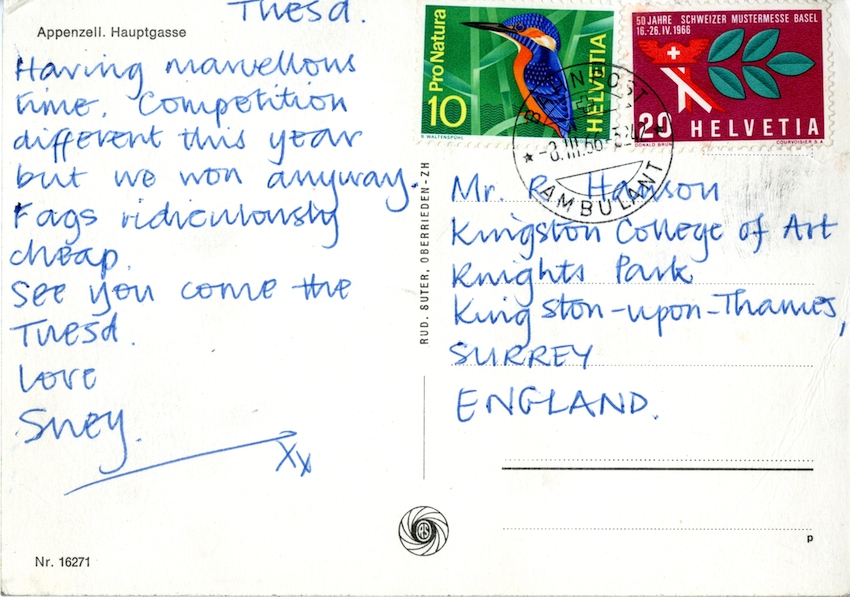 Thesd.
Appenzell. Hauptgasse
Having marvellous
time. Competition
different this year
but we won anyway.
Fags ridiculously
cheap.
See you come the
Tuesd.
Love
Suey.
Xx
Nr. 16271
RUD. SUTER, OBERRIEDEN-ZH
Pro Natura
10
HELVETIA
R WALTENSPÜHL
50 JAHRE SCHWEIZER MUSTERMESSE BASEL
16.-26. IV. 1966
20 HELVETIA
DONALD BRUN
COURVOISIER S.A
BAHNPOST
AMBULANT
Mr. R. Hanson
Kingston College of Art
Knights Park
Kingston-upon-Thames,
SURREY
ENGLAND.
p